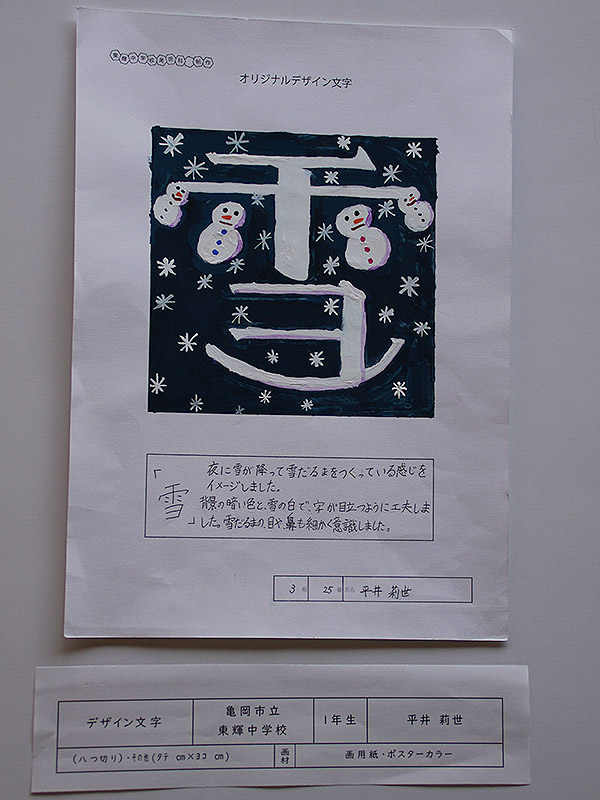 東輝中学校美術科 制作
オリジナルデザイン文字
雪
「雪」
夜に雪が降って雪だるまをつくっている感じを
イメージしました。
背景の暗い色と、雪の白で、字が目立つように工夫しま
した。雪だるまの、目や、鼻も細かく意識しました。
3 組 25 番 氏名 平井 莉世
デザイン文字 亀岡市立 東輝中学校 1年生 平井 莉世
(八つ切り)・その他(タテ cm×ヨコ cm) 画材 画用紙・ポスターカラー